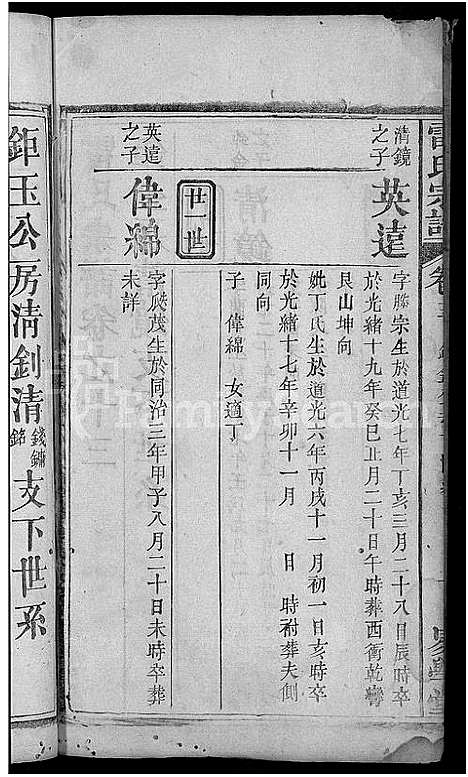 雷氏宗譜
清鏡之子
英達
字勝宗生於道光七年丁亥三月二十八日辰時卒
於光緒十九年癸巳正月二十日午時葬西衝乾彎
艮山坤向
妣丁氏生於道光六年丙戌十一月初一日亥時卒
於光緒十七年辛卯十一月 日 時祔葬夫側
同向
子 偉綿 女適丁
廿一世
英達之子
偉綿
字殿茂生於同治三年甲子八月二十日未時卒葬
未詳
鉅玉公房清釗清錢鏞銘支下世系
FamilySearch